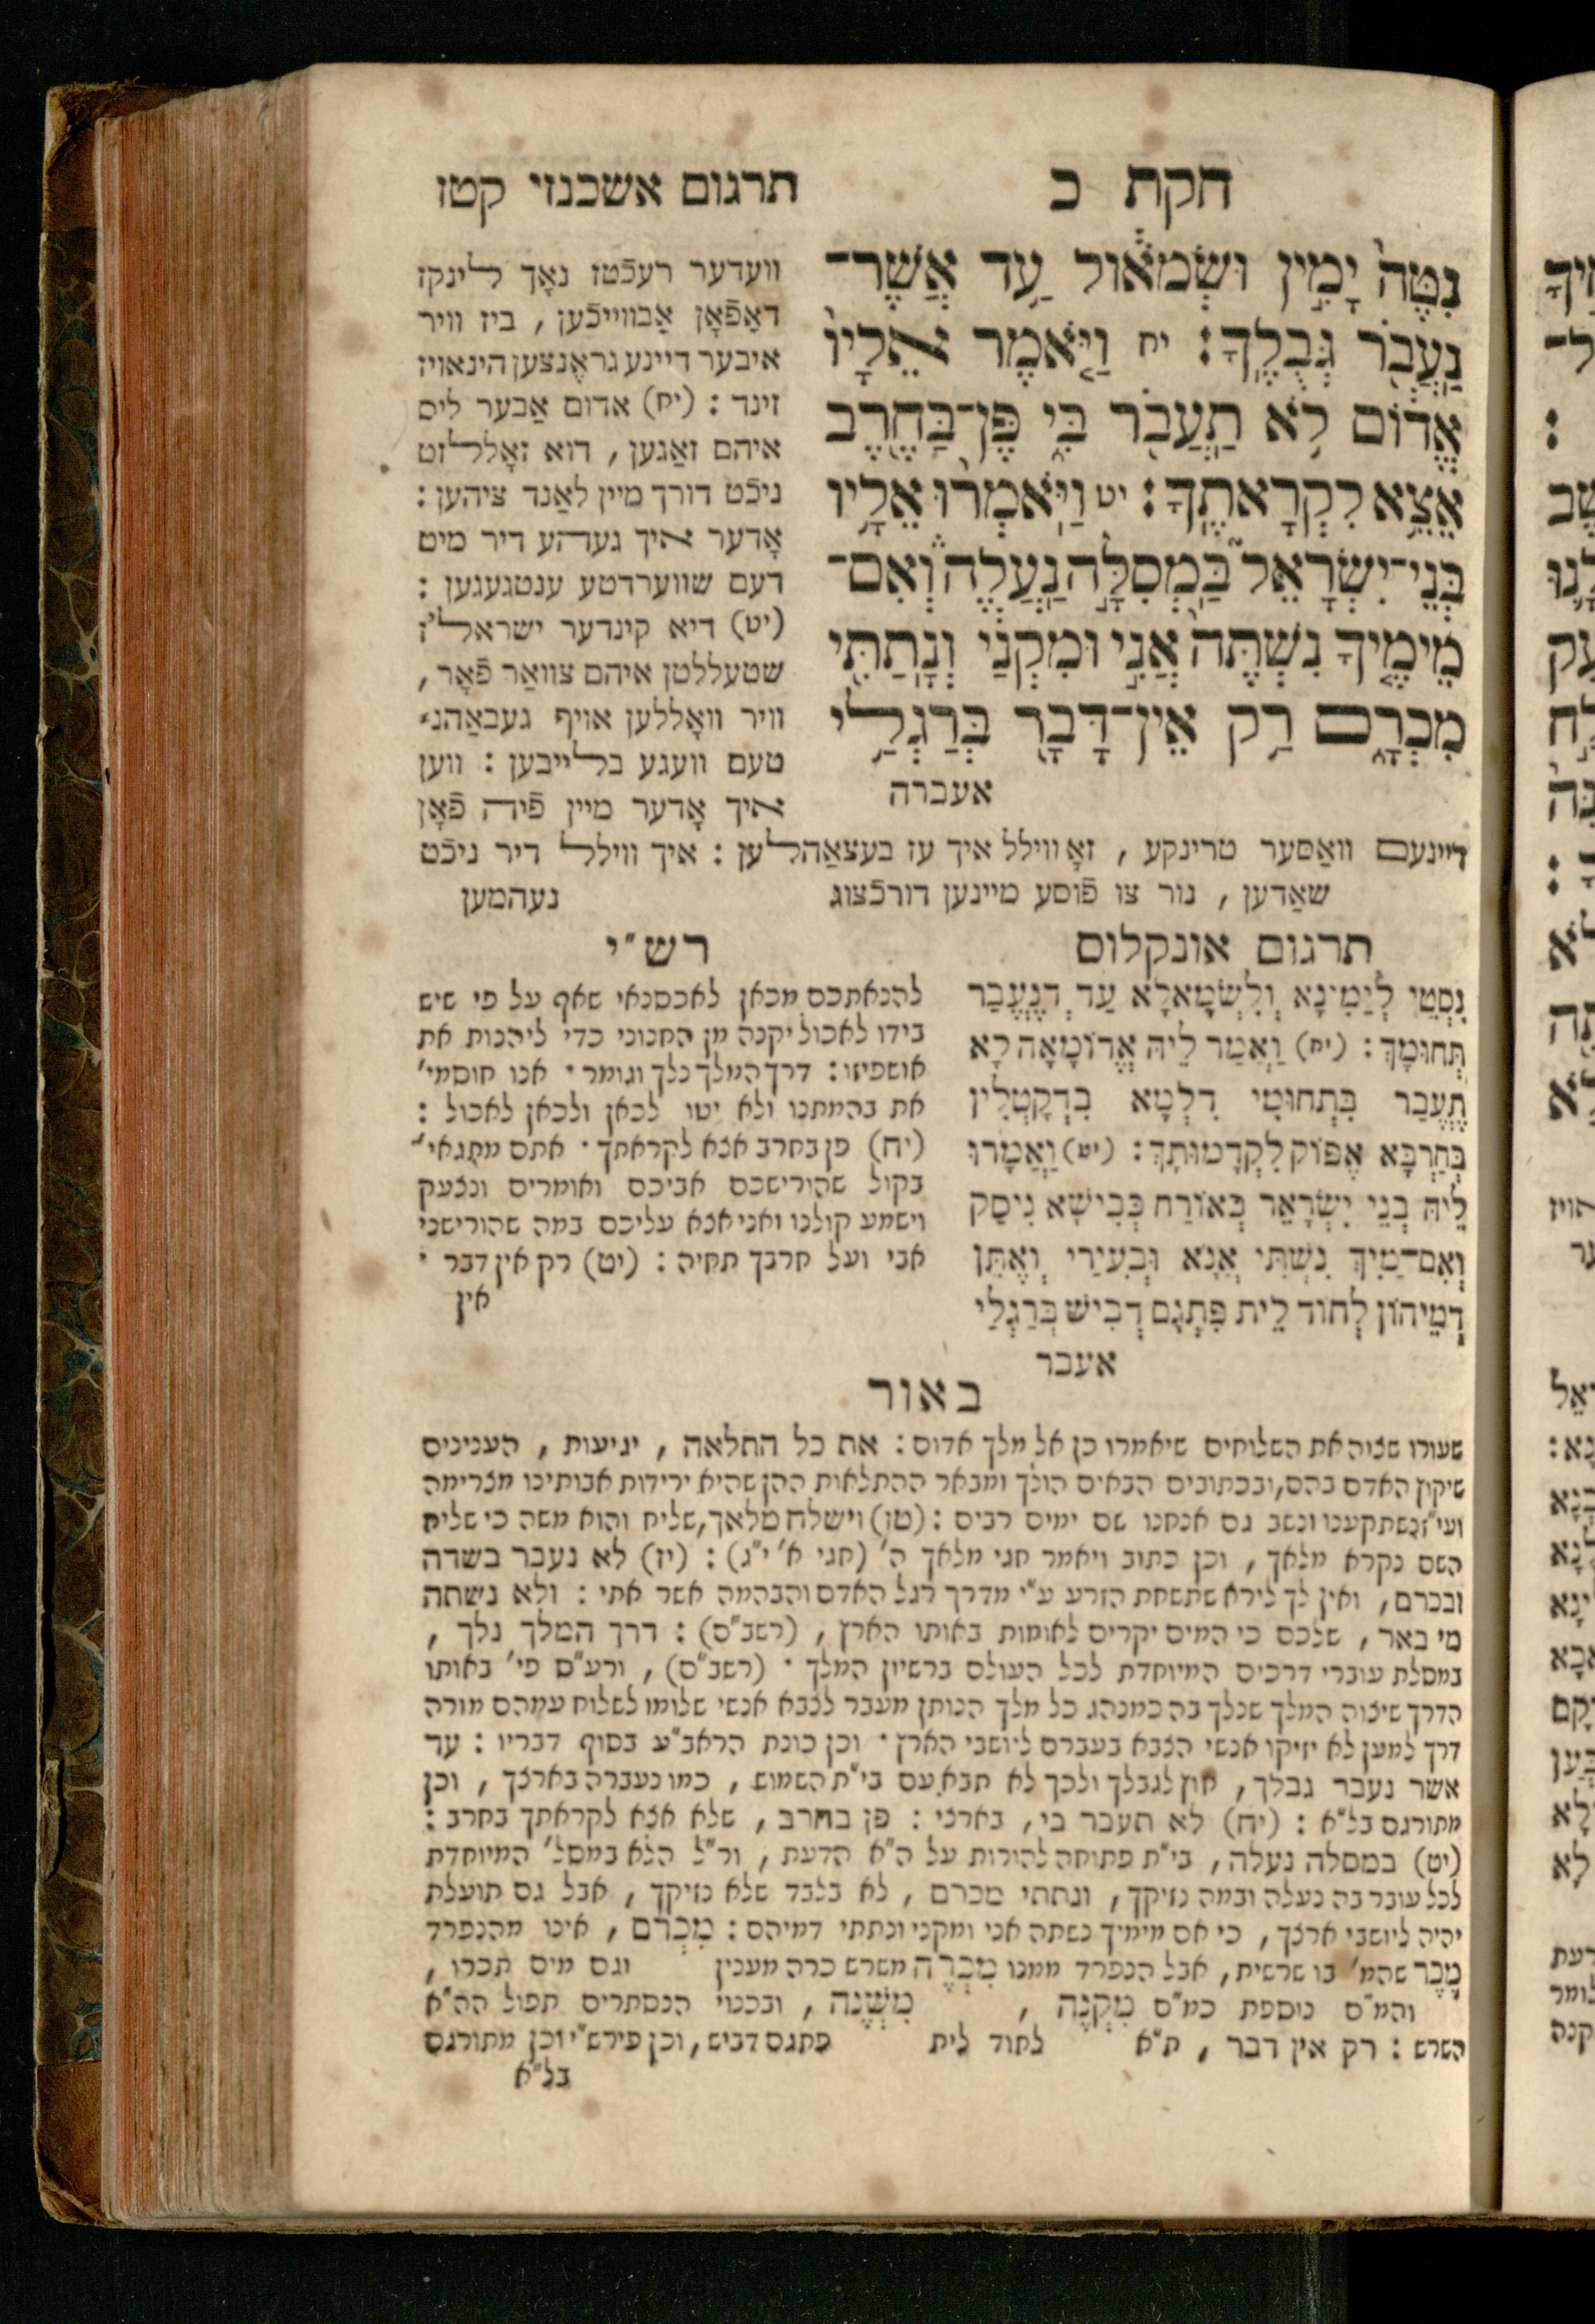 חקת כ
תרגום אשכנזי קטז
נִטֶּה֙ יָמִ֣ין וּשְׂמֹ֔אול עַ֥ד אֲשֶֽׁר־
נַעֲבֹ֖ר גְּבֻלֶֽךָ׃ יח וַיֹּ֤אמֶר אֵלָיו֙
אֱד֔וֹם לֹ֥א תַעֲבֹ֖ר בִּ֑י פֶּן־בַּחֶ֖רֶב
אֵצֵ֥א לִקְרָאתֶֽךָ׃ יט וַיֹּאמְר֨וּ אֵלָ֥יו
בְּנֵֽי־יִשְׂרָאֵל֮ בַּֽמְסִלָּ֣ה נַעֲלֶה֒ וְאִם־
מֵימֶ֤יךָ נִשְׁתֶּה֙ אֲנִ֣י וּמִקְנַ֔י וְנָתַתִּ֖י
מִכְרָ֑ם רַ֥ק אֵין־דָּבָ֖ר בְּרַגְלַ֥י
אעברה
וועדער רעכֿטז נאָך לינקז
דאַפֿאָן אַבווייכֿען , ביז וויר
איבער דיינע גראֶנצען הינאויז
זינד : (יח) אדום אַבער ליס
איהם זאַגען , דוא זאָללזט
ניכֿט דורך מיין לאַנד ציהען :
אָדער איך געהע דיר מיט
דעם שווערדטע ענטגעגען :
(יט) דיא קינדער ישראל'ז
שטעללטן איהם צוואַר פֿאָר ,
וויר וואָללען אויף געבאַהנ־
טעם וועגע בלייבען : ווען
איך אָדער מיין פֿיה פֿאָן
דיינעם וואַסער טרינקע , זאָ ווילל איך עז בעצאַהלען : איך ווילל דיר ניכֿט
שאַדען , נור צו פֿוסע מיינען דורכֿצוג
נעהמען
תרגום אונקלוס
נִסְטֵי לְיַמִּינָא וְלִשְׂמָאלָא עַד דְנֶעֱבַר
תְּחוּמָךְ : (יח) וַאֲמַר לֵיהּ אֱדוֹמָאָה לָא
תֶעֱבַר בִּתְחוּמִי דִלְמָא בִדְקָטְלִין
בְּחַרְבָּא אֶפּוֹק לִקְדָמוּתָךְ : (יט) וַאֲמָרוּ
לֵיהּ בְּנֵי יִשְׂרָאֵל בְּאוֹרַח כְּבִישָׁא נִיסַק
וְאִם־מַיִךְ נִשְׁתִּי אֲנָא וּבְעִירַי וְאֶתֵּן
דְּמֵיהוֹן לְחוֹד לֵית פִּתְגָם דְבִישׁ בְּרַגְלַי
אעבר
רש״י
להנאתכם מכאן לאכסנאי שאף על פי שיש
בידו לאכול יקנה מן החנוני כדי ליהנות את
אושפיזו : דרך המלך נלך וגומר · אנו חוסמי׳
את בהמתנו ולא יטו לכאן ולכאן לאכול :
(יח) פן בחרב אצא לקראתך · אתם מתגאי׳
בקול שהורישכם אביכם ואומרים ונצעק
וישמע קולנו ואני אצא עליכם במה שהורישני
אבי ועל חרבך תחיה : (יט) רק אין דבר ·
אין
באור
שעורו שצוה את השלוחים שיאמרו כן אל מלך אדום : את כל התלאה , יגיעות , הענינים
שיקוץ האדם בהם, ובכתובים הבאים הולך ומבאר ההתלאות ההן שהיא ירידות אבותינו מצרימה
ועי״ז נשתקענו ונשב גם אנחנו שם ימים רבים : (טז) וישלח מלאך, שליח והוא משה כי שליח
השם נקרא מלאך , וכן כתוב ויאמר חגי מלאך ה׳ (חגי א׳ י״ג) : (יז) לא נעבר בשדה
ובכרם , ואין לך לירא שתשחת הזרע ע״י מדרך רגל האדם והבהמה אשר אתי : ולא נשתה
מי באר , שלכם כי המים יקרים לאומות באותו הארץ , (רשב״ם) : דרך המלך נלך ,
במסלת עוברי דרכים המיוחדת לכל העולם ברשיון המלך · (רשב״ם) , ורע״ם פי׳ באותו
הדרך שיצוה המלך שנלך בה כמנהג כל מלך הנותן מעבר לצבא אנשי שלומו לשלוח עמהם מורה
דרך למען לא יזיקו אנשי הצבא בעברם ליושבי הארץ · וכן כונת הראב״ע בסוף דבריו : עד
אשר נעבר גבלך , חוץ לגבלך ולכך לא תבא עם בי״ת השמוש , כמו נעברה בארצך , וכן
מתורגם בל״א : (יח) לא תעבר בי , בארצי : פן בחרב , שלא אצא לקראתך בחרב :
(יט) במסלה נעלה , בי״ת פתוחה להורות על ה״א הדעת , ור״ל הלא במסל׳ המיוחדת
לכל עובר בה נעלה ובמה נזיקך , ונתתי מכרם , לא בלבד שלא נזיקך , אבל גם תועלת
יהיה ליושבי ארצך , כי אם מימיך נשתה אני ומקני ונתתי דמיהם : מִכְרָם , אינו מהנפרד
מֶכֶר שהמ׳ בו שרשית , אבל הנפרד ממנו מִכְרֶה משרש כרה מענין וגם מים תכרו ,
והמ״ם נוספת כמ״ם מִקְנֶה , מִשְׁנֶה , ובכנוי הנסתרים תפול הה״א
השרש : רק אין דבר , ת״א לחוד לית פתגם דביש , וכן פירש״י וכן מתורגם
בל״א